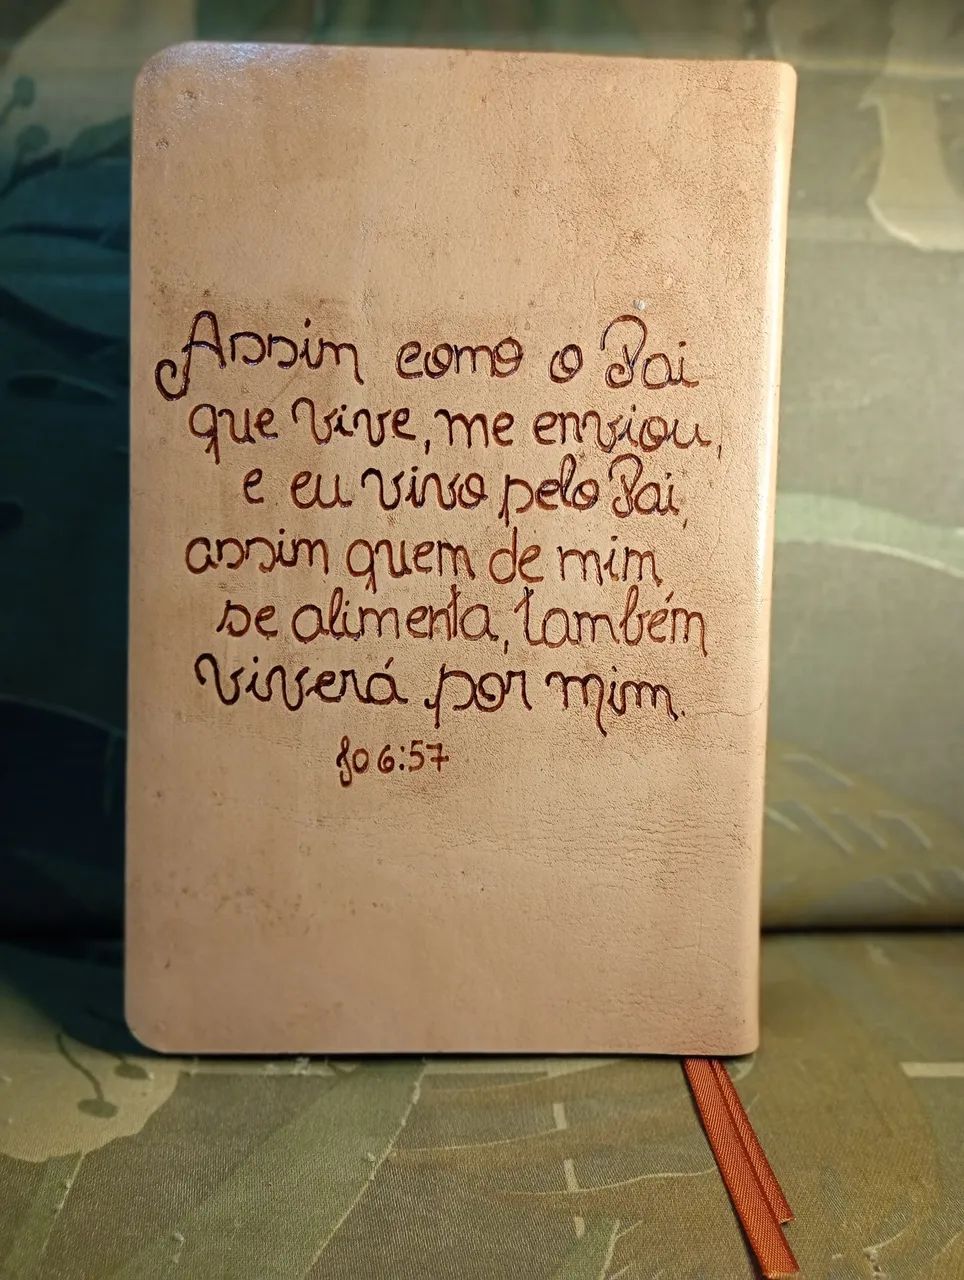 Assim como o Pai
que vive, me enviou,
e eu vivo pelo Pai,
assim quem de mim
se alimenta, também
viverá por mim.
Jo 6:57